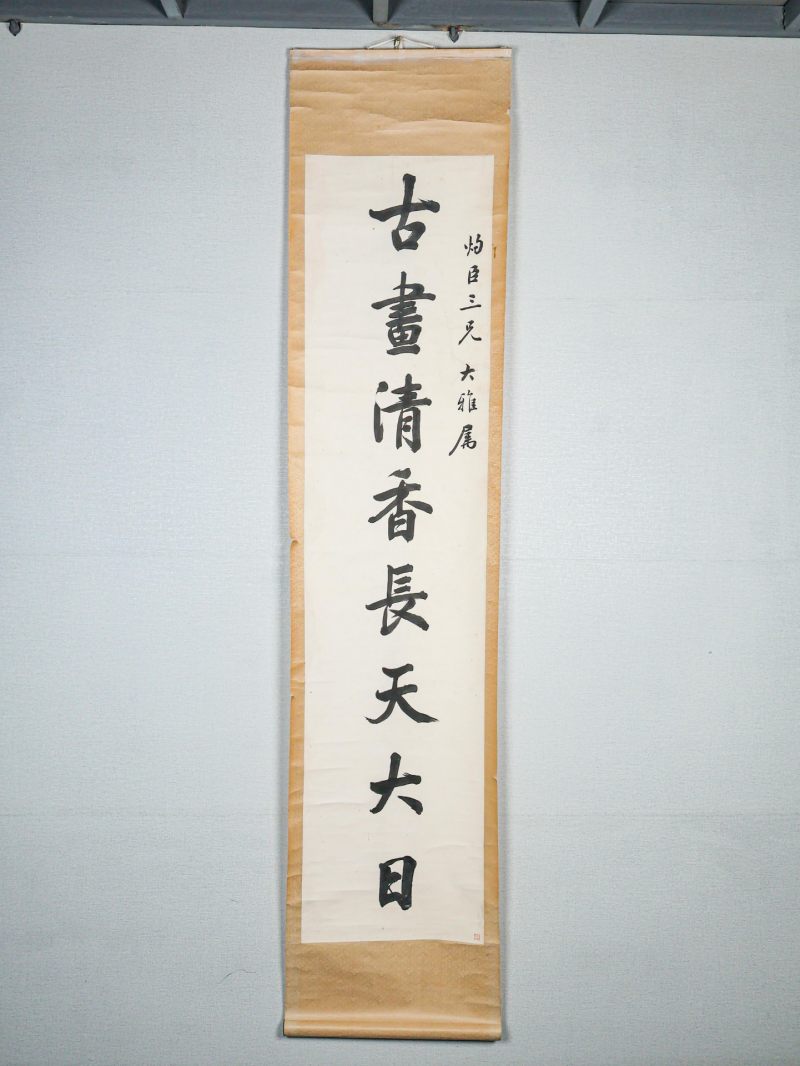 灼臣三兄 大雅属
古畫清香長天大日